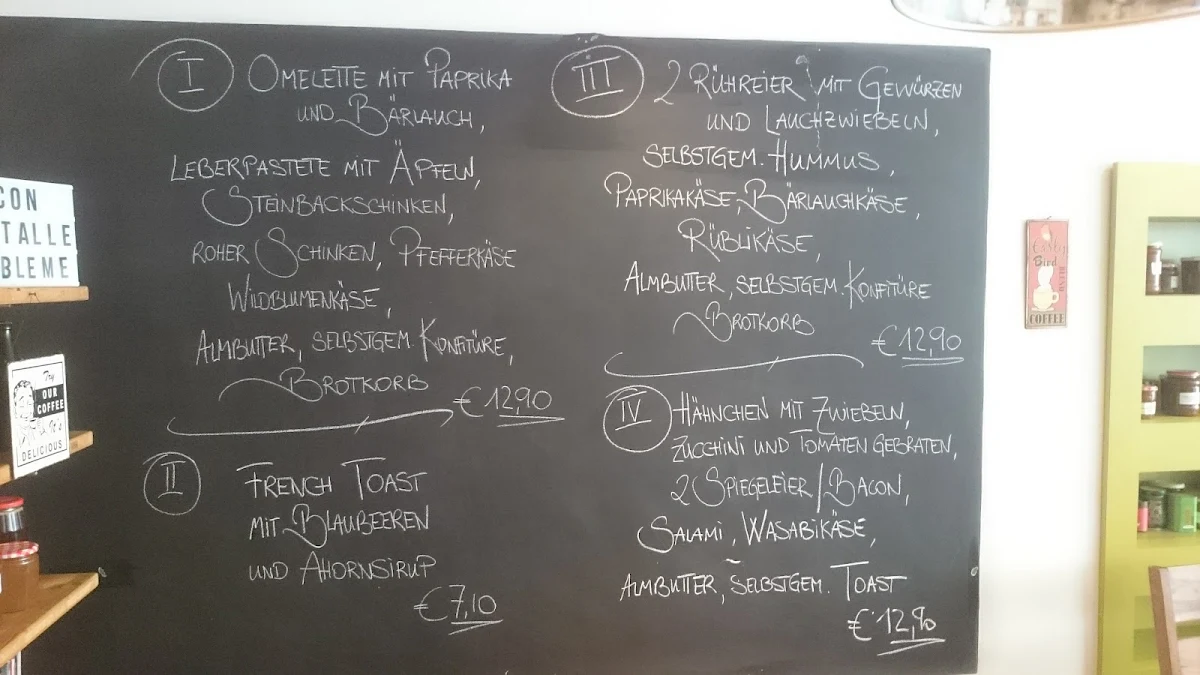 I
OMELETTE MIT PAPRIKA
UND BÄRLAUCH,
LEBERPASTETE MIT ÄPFELN,
STEINBACKSCHINKEN,
ROHER SCHINKEN, PFEFFERKÄSE
WILDBLUMENKÄSE,
ALMBUTTER, SELBSTGEM. KONFITÜRE,
BROTKORB
€ 12,90
II
FRENCH TOAST
MIT BLAUBEEREN
UND AHORNSIRUP
€ 7,10
III
2 RÜHREIER MIT GEWÜRZEN
UND LAUCHZWIEBELN,
SELBSTGEM. HUMMUS,
PAPRIKAKÄSE, BÄRLAUCHKÄSE,
RÜBLIKÄSE,
ALMBUTTER, SELBSTGEM. KONFITÜRE
BROTKORB
€ 12,90
IV
HÄHNCHEN MIT ZWIEBELN,
ZUCCHINI UND TOMATEN GEBRATEN,
2 SPIEGELEIER/BACON,
SALAMI, WASABIKÄSE,
ALMBUTTER, SELBSTGEM. TOAST
€ 12,90
CON
TALLE
BLEME
Try
OUR
COFFEE
It's
DELICIOUS
Early
Bird
COFFEE